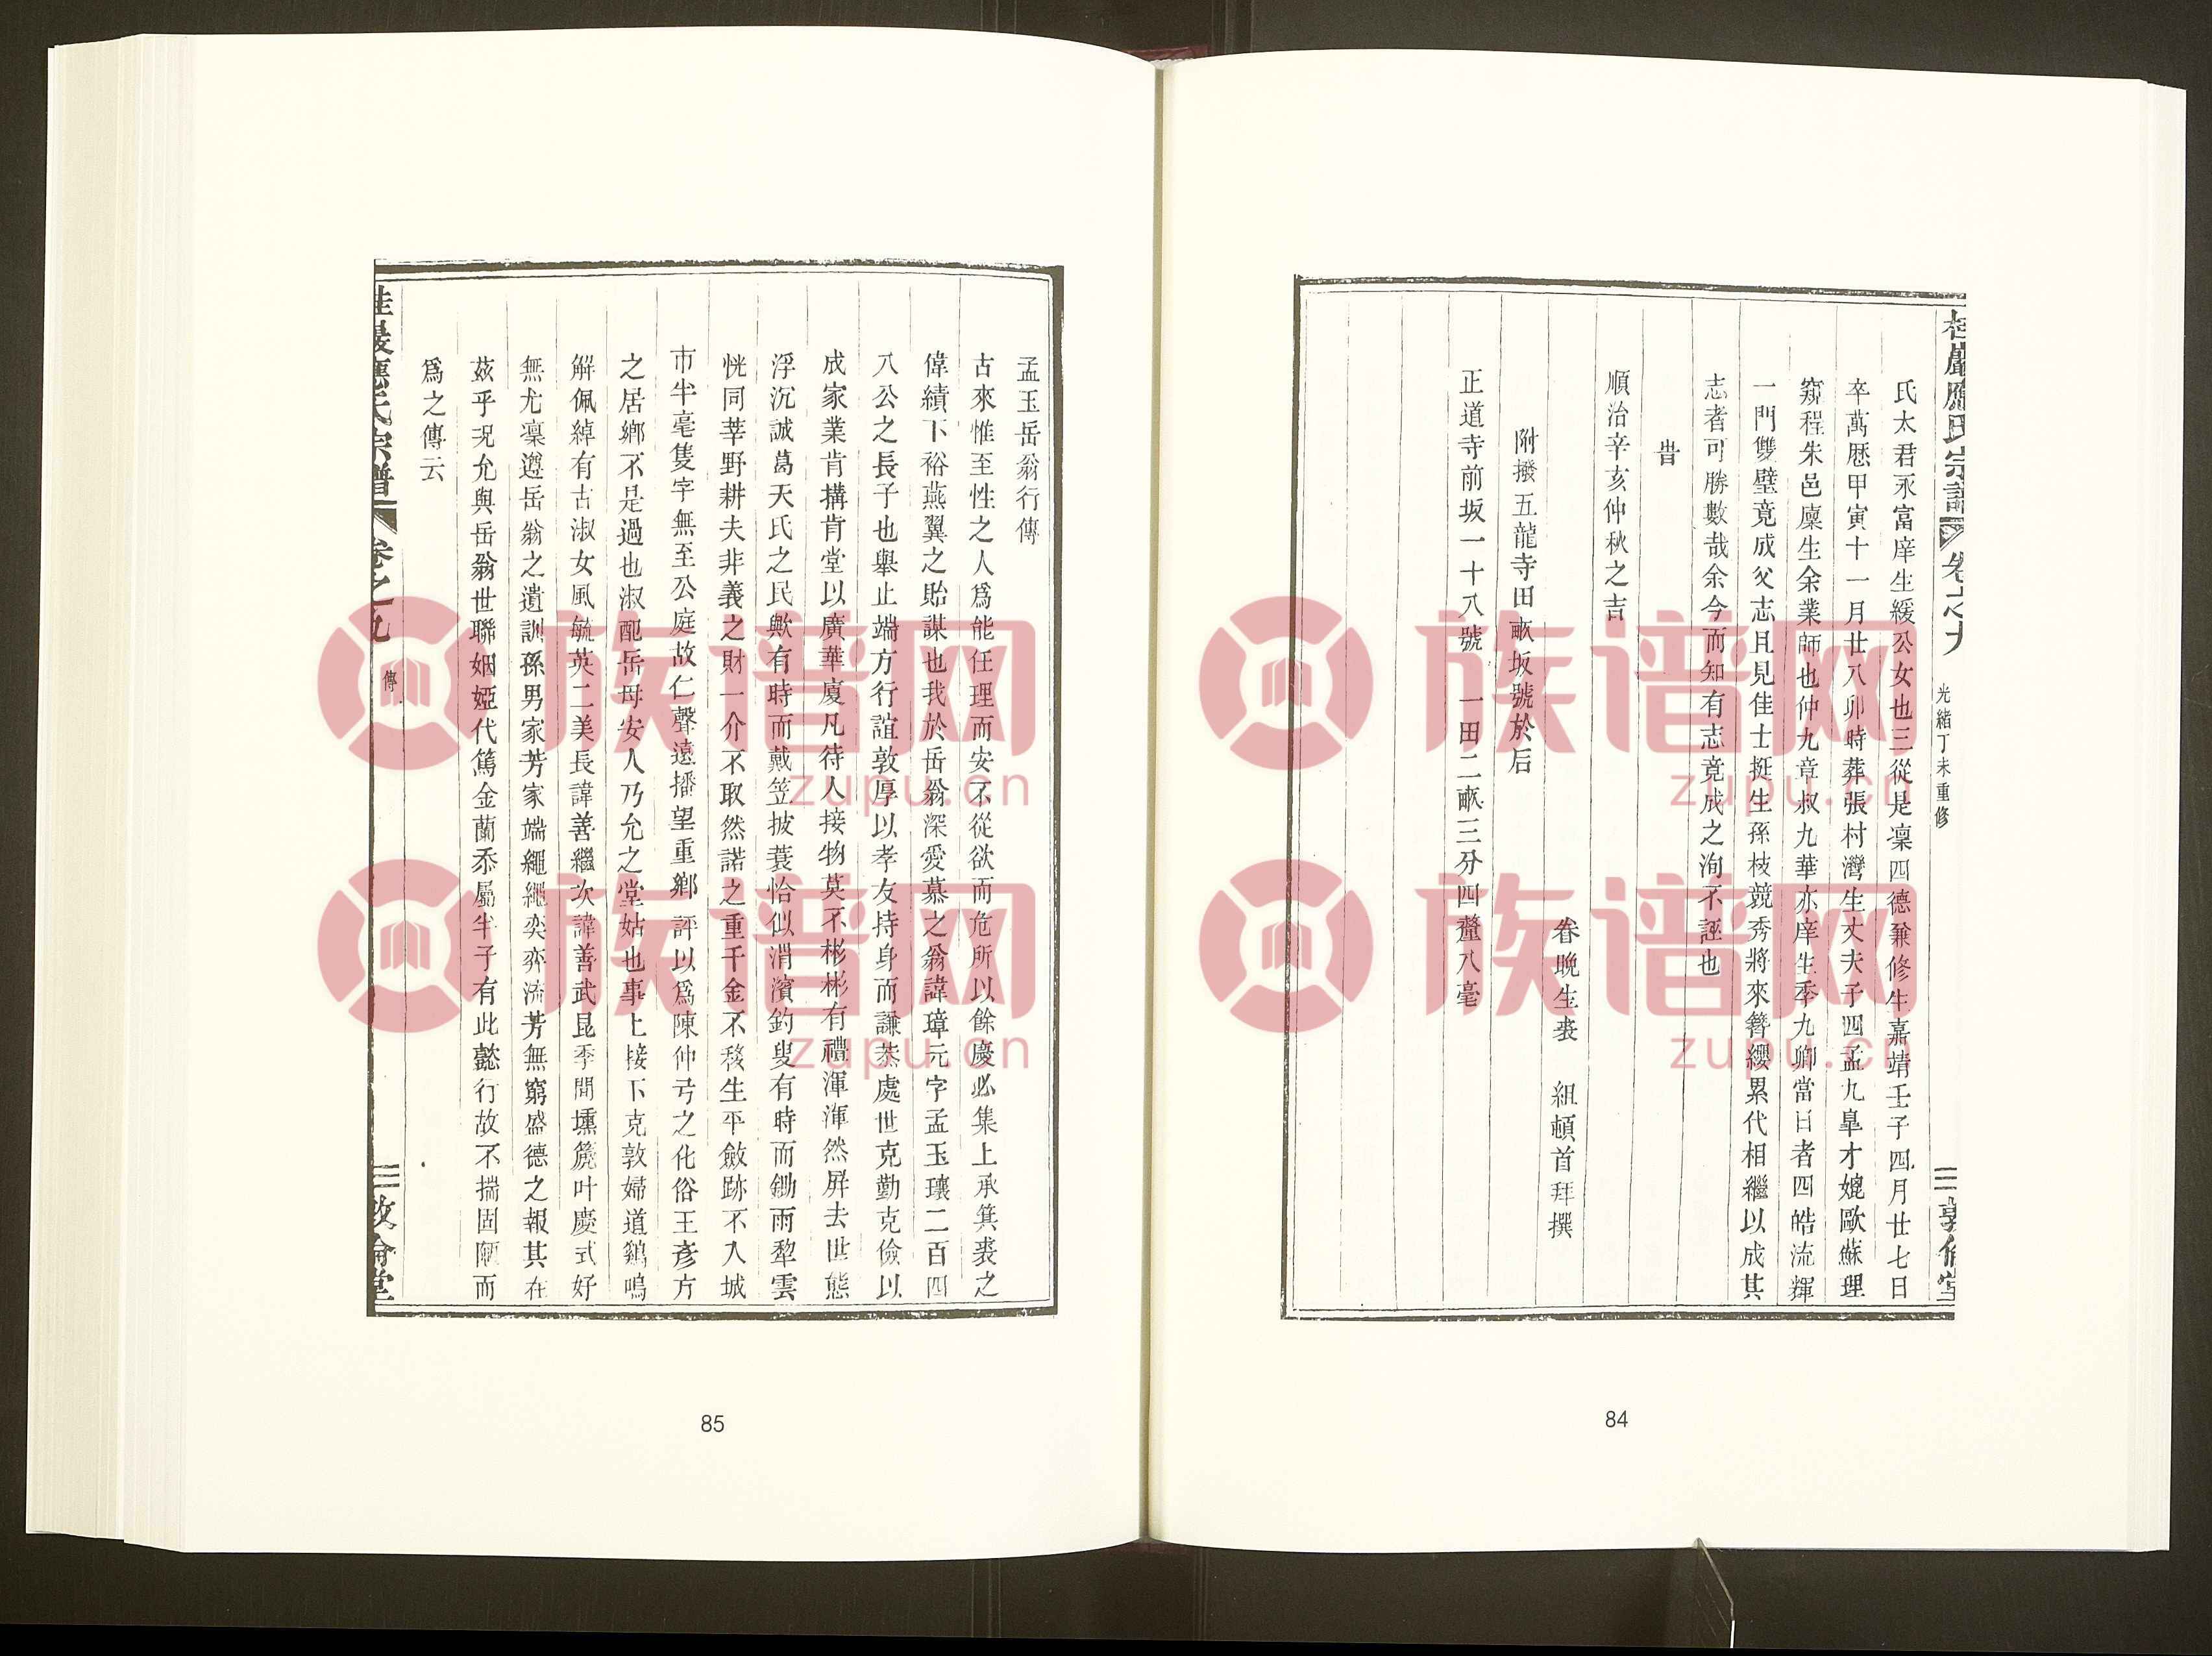 桂巖應氏宗譜 卷之九 光緒丁未重修 三 敦倫堂
氏太君永富庠生緩公女也三從是凜四德兼修生嘉靖壬子四月廿七日
卒萬歷甲寅十一月廿八卯時葬張村灣生丈夫子四孟九臯才媲歐蘇理
窺程朱邑廩生余業師也仲九章叔九華亦庠生季九卿當日者四皓流輝
一門雙璧竟成父志且見佳士挺生孫枝競秀將來簪纓累代相繼以成其
志者可勝數哉余今而知有志竟成之洵不誣也
旹
順治辛亥仲秋之吉
眷晚生裘 組頓首拜撰
附撥五龍寺田畝坂號於后
正道寺前坂一十八號 一田二畝三分四釐八毫
84
孟玉岳翁行傳
古來惟至性之人爲能任理而安不從欲而危所以餘慶必集上承箕裘之
偉績下裕燕翼之貽謀也我於岳翁深愛慕之翁諱瑋元字孟玉瓖二百四
八公之長子也舉止端方行誼敦厚以孝友持身而謙恭處世克勤克儉以
成家業肯搆肯堂以廣華廈凡待人接物莫不彬彬有禮渾渾然屏去世態
浮沉誠葛天氏之民歟有時而戴笠披蓑恰似渭濱釣叟有時而鋤雨犁雲
恍同莘野耕夫非義之財一介不取然諾之重千金不移生平斂跡不入城
市半毫隻字無至公庭故仁聲遠播望重鄉評以爲陳仲弓之化俗王彥方
之居鄉不是過也淑配岳母安人乃允之堂姑也事上接下克敦婦道鷄鳴
解佩綽有古淑女風毓英二美長諱善繼次諱善武昆季間壎篪叶慶式好
無尤凜遵岳翁之遺訓孫男家芳家端繩繩奕奕流芳無窮盛德之報其在
茲乎況允與岳翁世聯姻婭代篤金蘭忝屬半子有此懿行故不揣固陋而
爲之傳云
桂巖應氏宗譜 卷之九 傳 三 敦倫堂
85
族谱网
zupu.cn
族谱网
zupu.cn
族谱网
zupu.cn
族谱网
zupu.cn